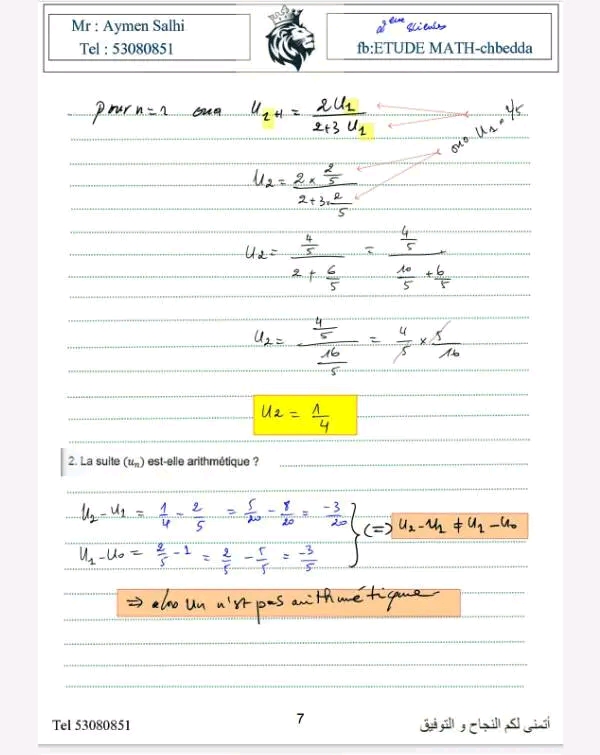 Mr : Aymen Salhi
Tel : 53080851
3ème Sciences
fb:ETUDE MATH-chbedda
pour n=1 on a U1+1 = 2U1 / 2+3 U1
on a U1 = 2/5
U2 = 2 × 2/5 / 2+3·2/5
U2 = 4/5 / 2 + 6/5 = 4/5 / 10/5 + 6/5
U2 = 4/5 / 16/5 = 4/5 × 5/16
U2 = 1/4
2. La suite (un) est-elle arithmétique ?
U2 - U1 = 1/4 - 2/5 = 5/20 - 8/20 = -3/20
(=) U2 - U1 ≠ U1 - U0
U1 - U0 = 2/5 - 1 = 2/5 - 5/5 = -3/5
⇒ alors Un n'est pas arithmétique
Tel 53080851
7
أتمنى لكم النجاح و التوفيق